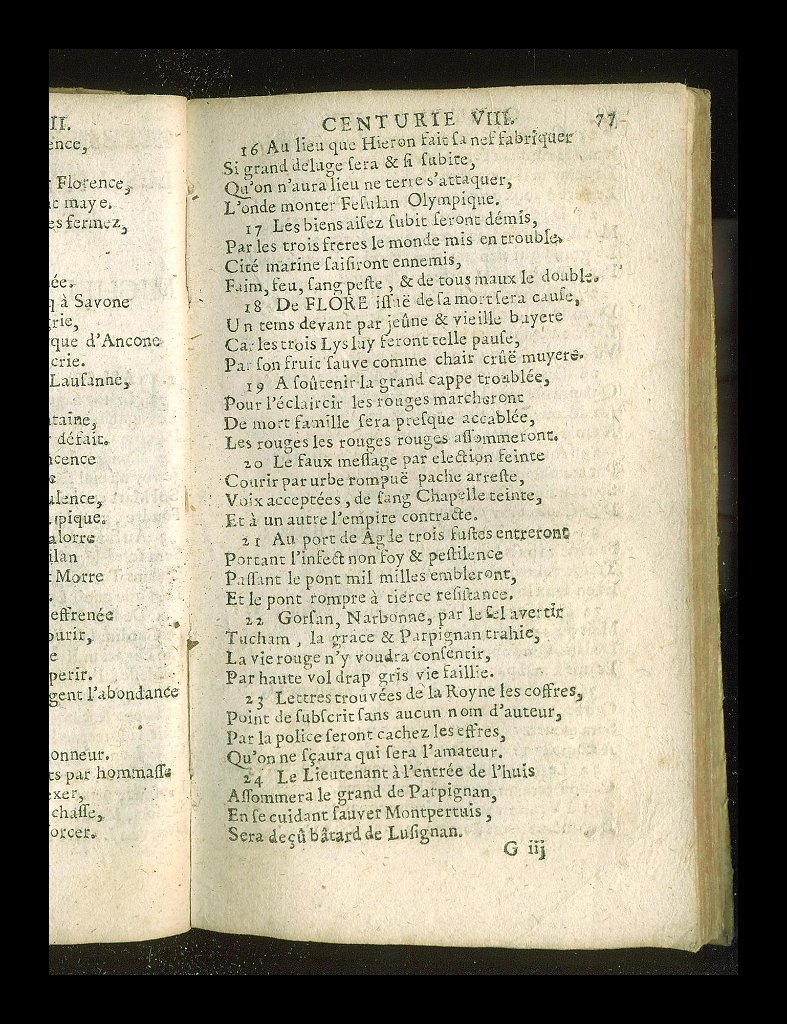 II.
ence,
Florence,
t maye.
es fermez,
ée.
q à Savone
rie,
que d'Ancone
crie.
Lausanne,
taine,
défait.
cence
ulence,
pique.
alorre
ilan
Morre
effrenée
ourir,
e
perir.
gent l'abondance
onneur.
ts par hommaſſe
exer,
chaſſe,
orcer.
CENTURIE VIII. 77
16 Au lieu que Hieron fait ſa nef fabriquer
Si grand deluge ſera & ſi ſubite,
Qu'on n'aura lieu ne terre s'attaquer,
L'onde monter Feſulan Olympique.
17 Les biens aiſez ſubit ſeront démis,
Par les trois freres le monde mis en trouble,
Cité marine ſaiſiront ennemis,
Faim, feu, ſang peſte, & de tous maux le double.
18 De FLORE iſſuë de ſa mort ſera cauſe,
Un tems devant par jeûne & vieille buyere
Car les trois Lys luy feront telle pauſe,
Par ſon fruit ſauve comme chair crûë muyere.
19 A ſoûtenir la grand cappe troublée,
Pour l'éclaircir les rouges marcheront
De mort famille ſera preſque accablée,
Les rouges les rouges rouges aſſommeront.
20 Le faux meſſage par election feinte
Courir par urbe rompuë pache arreſte,
Voix acceptées, de ſang Chapelle teinte,
Et à un autre l'empire contracte.
21 Au port de Agle trois fuſtes entreront
Portant l'infect non foy & peſtilence
Paſſant le pont mil milles embleront,
Et le pont rompre à tierce reſiſtance.
22 Gorſan, Narbonne, par le ſel avertir
Tucham, la grace & Parpignan trahie,
La vie rouge n'y voudra conſentir,
Par haute vol drap gris vie faillie.
23 Lettres trouvées de la Royne les coffres,
Point de ſubſcrit ſans aucun nom d'auteur,
Par la police ſeront cachez les effres,
Qu'on ne ſçaura qui ſera l'amateur.
24 Le Lieutenant à l'entrée de l'huis
Aſſommera le grand de Parpignan,
En ſe cuidant ſauver Montpertuis,
Sera deçû bâtard de Luſignan.
G iij